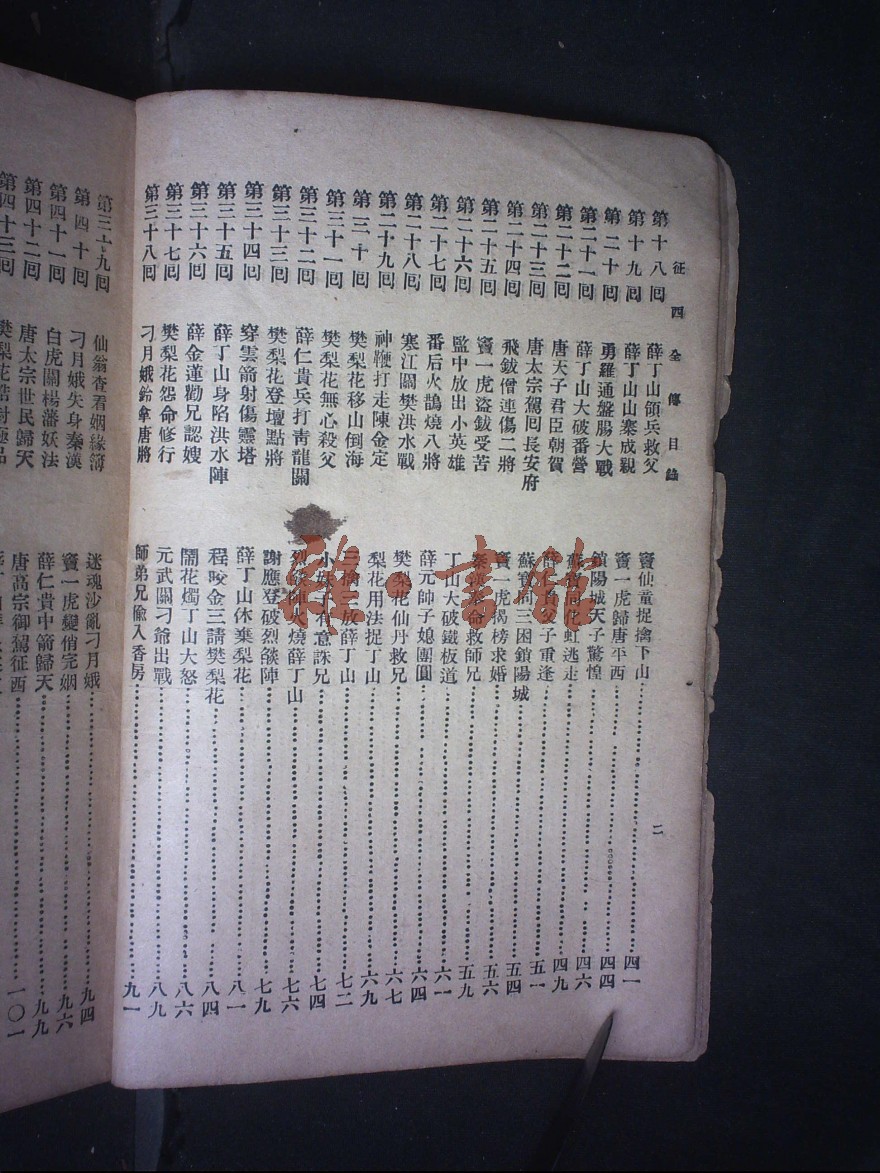 征四全傳目錄
第十八囘 薛丁山領兵救父 竇仙童捉擒下山 四一
第十九囘 薛丁山山寨成親 竇一虎歸唐平西 四四
第二十囘 勇羅通盤腸大戰 鎖陽城天子驚惶 四六
第二十一囘 薛丁山大破番營 蘇寶同化虹逃走 四九
第二十二囘 唐天子君臣朝賀 薛仁貴父子重逢 五一
第二十三囘 唐太宗駕囘長安府 蘇寶同三困鎖陽城 五四
第二十四囘 飛鈸僧連傷二將 竇一虎揭榜求婚 五六
第二十五囘 竇一虎盜鈸受苦 秦漢奉命救師兄 五九
第二十六囘 監中放出小英雄 丁山大破鐵板道 六一
第二十七囘 番后火鵲燒八將 薛元帥子媳團圓 六四
第二十八囘 寒江關樊洪水戰 樊梨花仙丹救兄 六七
第二十九囘 神鞭打走陳金定 梨花用法捉丁山 六九
第三十囘 樊梨花移山倒海 三擒三放薛丁山 七二
第三十一囘 樊梨花無心殺父 小妹子有意誅兄 七四
第三十二囘 薛仁貴兵打靑龍關 烈燄陣火燒薛丁山 七六
第三十三囘 樊梨花登壇點將 謝應登破烈燄陣 七九
第三十四囘 穿雲箭射傷靈塔 薛丁山休棄梨花 八一
第三十五囘 薛丁山身陷洪水陣 程咬金三請樊梨花 八四
第三十六囘 薛金蓮勸兄認嫂 鬧花燭丁山大怒 八六
第三十七囘 樊梨花怨命修行 元武關刁爺出戰 八九
第三十八囘 刁月娥鈴拿唐將 師弟兄偸入香房 九一
二
第三十九囘 仙翁查看姻緣簿 迷魂沙亂刁月娥 九四
第四十囘 刁月娥失身秦漢 竇一虎變俏完姻 九六
第四十一囘 白虎關楊藩妖法 薛仁貴中箭歸天 九九
第四十二囘 唐太宗世民歸天 唐高宗御駕征西 一〇一
第四十三囘 樊梨花誥封極品
雅·書館